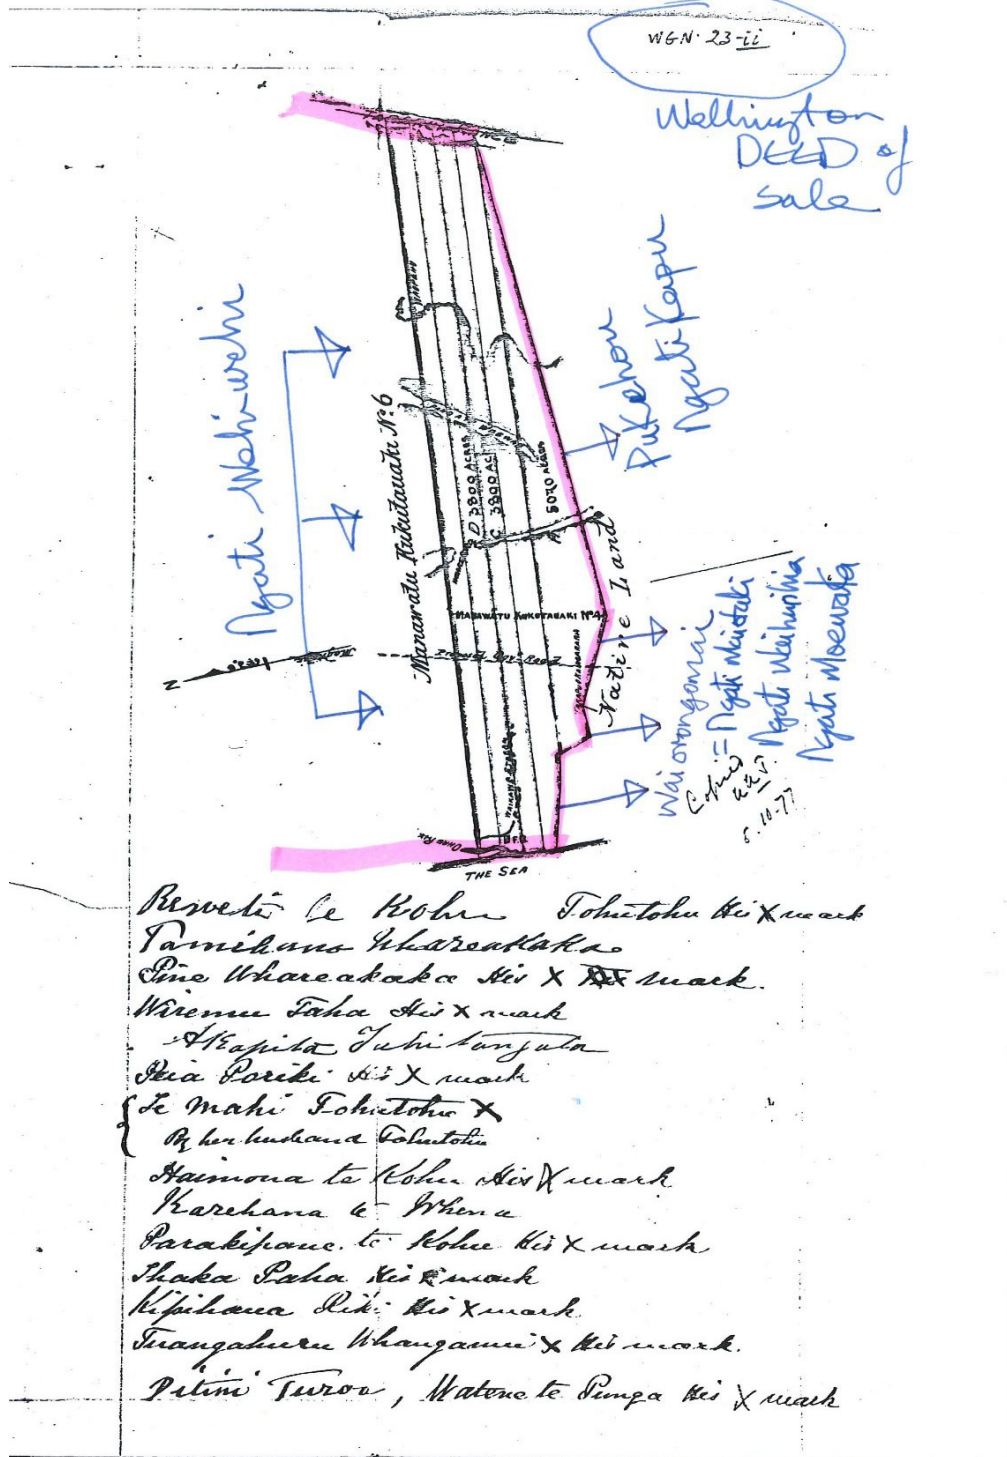 WGN. 23-ii
Wellington
DEED of
Sale
Ngati Wehiwehi
Pukehou
Ngati Kapu
Manawatu Kukutauaki No. 6
D 3800 ACRES
C 3800 AC
A 5020 ACRES
MANAWATU KUKUTAUAKI No 4
Native Land
N
Waiorongomai
= Ngati Maiotaki
Ngati Waihurihia
Ngati Moewaka
Copied
6.10.77
THE SEA
Tohutohu His X mark
Tamihana Whareakaka
Pine Whareakaka His X mark.
Wiremu Taha His X mark
Akapita Tuhitangata
Poriki His X mark
{ Te Mahi Tohutohu X
By her husband Tohutohu
Haimona te Kohu His X mark
Karehana te Whena
Parakipane te Kohu His X mark
Ihaka Paha His X mark
His X mark
Tuangahuru X His mark.
Pitini Turoa, Watene te Punga His X mark